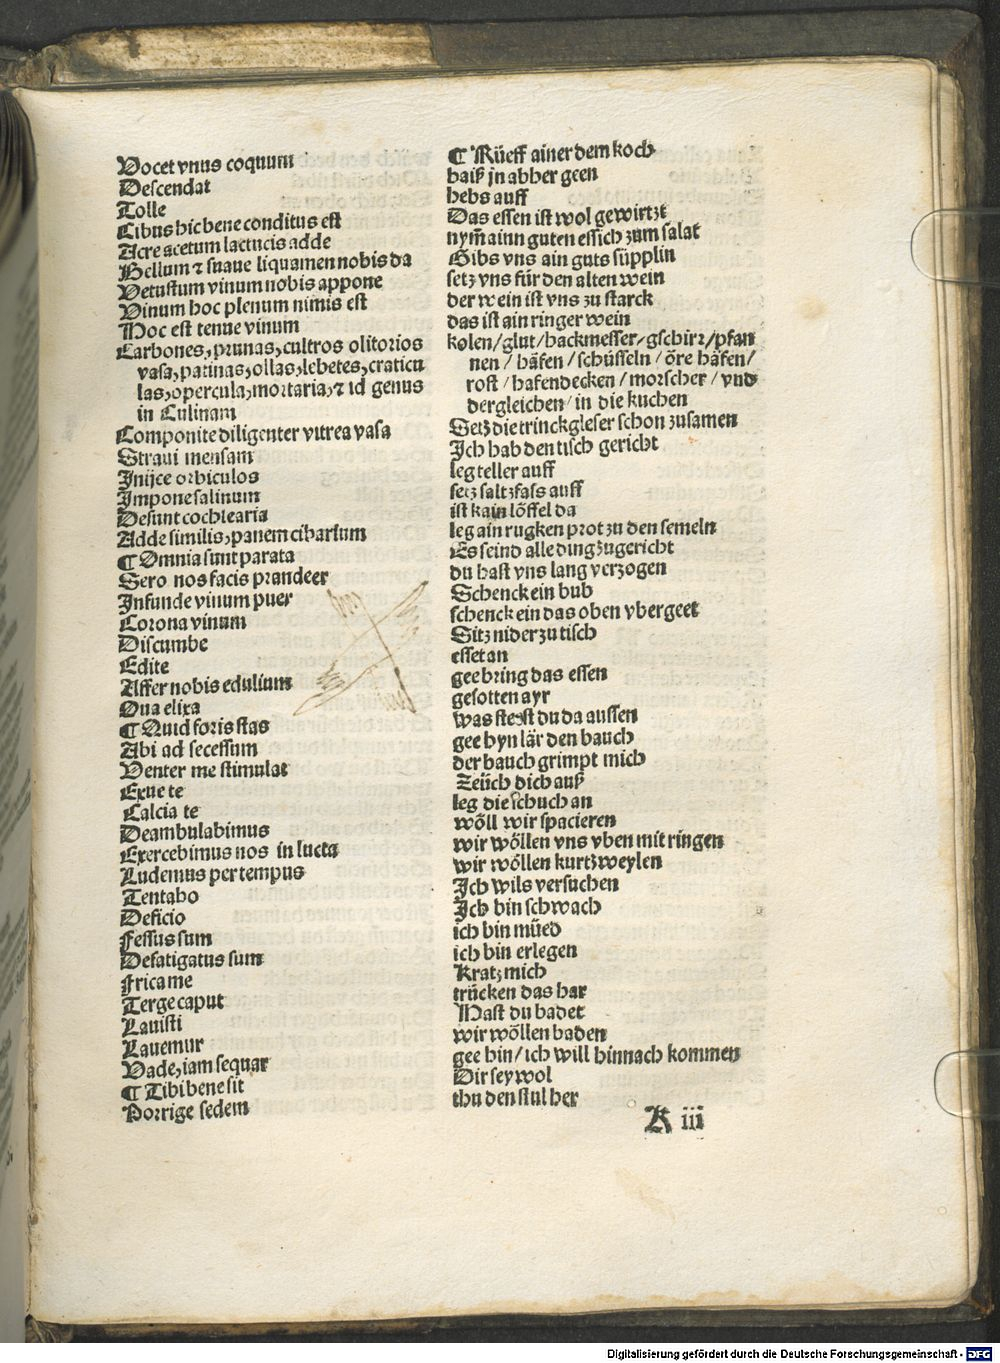 Vocet vnus coquum
Descendat
Tolle
Cibus hic bene conditus est
Acre acetum lactucis adde
Bellum ⁊ suaue liquamen nobis da
Vetustum vinum nobis appone
Vinum hoc plenum nimis est
Hoc est tenue vinum
Carbones, prunas, cultros olitorios
vasa, patinas, ollas, lebetes, craticu
las, opercula, mortaria, ⁊ id genus
in Culinam
Componite diligenter vitrea vasa
Straui mensam
Inijce orbiculos
Impone salinum
Desunt cochlearia
Adde similis, panem cibarium
¶ Omnia sunt parata
Sero nos facis prandeer
Infunde vinum puer
Corona vinum
Discumbe
Edite
Affer nobis edulium
Oua elixa
¶ Quid foris stas
Abi ad secessum
Venter me stimulat
Exue te
Calcia te
Deambulabimus
Exercebimus nos in lucta
Ludemus per tempus
Tentabo
Deficio
Fessus sum
Defatigatus sum
Frica me
Terge caput
Lauisti
Lauemur
Vade, iam sequar
¶ Tibi bene sit
Porrige sedem
¶ Rüeff ainer dem koch
haiß jn abher geen
hebs auff
Das essen ist wol gewirtzt
nym̄ ainn guten essich zum salat
Gibs vns ain guts süpplin
setz vns für den alten wein
der wein ist vns zu starck
das ist ain ringer wein
kolen/glut/hackmesser/gschirr/pfan
nen/häfen/schüsseln/öre häfen/
rost/hafendecken/morscher/vnd
dergleichen/in die kuchen
Setz die trinckgleser schon zusamen
Ich hab den tisch gericht
leg teller auff
setz saltzfass auff
ist kain löffel da
leg ain rugken prot zu den semeln
Es seind alle ding zugericht
du hast vns lang verzogen
Schenck ein bub
schenck ein das oben vbergeet
Sitz nider zu tisch
esset an
gee bring das essen
gesotten ayr
was steest du da aussen
gee hyn lär den bauch
der bauch grimpt mich
Zeüch dich auß
leg die schuch an
wöll wir spacieren
wir wöllen vns vben mit ringen
wir wöllen kurtzweylen
Ich wils versuchen
Ich bin schwach
ich bin müed
ich bin erlegen
Kratz mich
trücken das har
Hast du badet
wir wöllen baden
gee hin/ich will hinnach kommen
Dir sey wol
thu den stul her
K iii
Digitalisierung gefördert durch die Deutsche Forschungsgemeinschaft - DFG